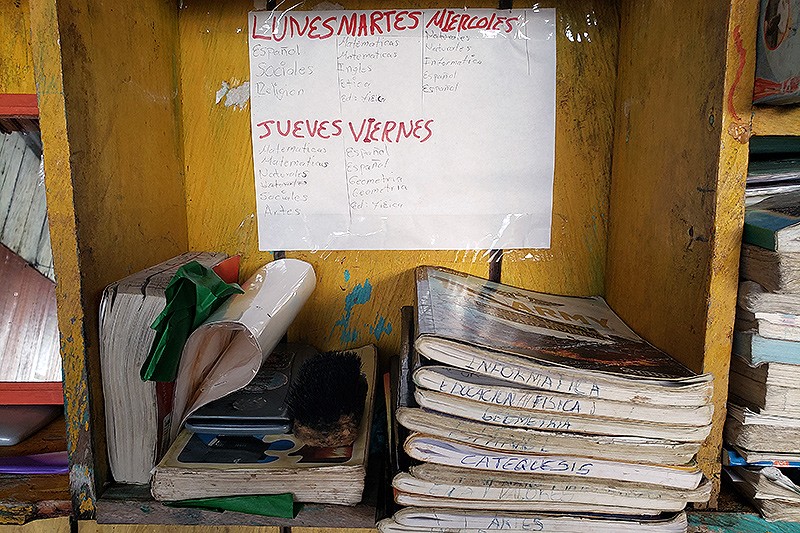 LUNES MARTES MIERCOLES
Español
Sociales
Religion
Matematicas
Matematicas
Ingles
Etica
Naturales
Naturales
Informatica
Español
Español
JUEVES VIERNES
Matematicas
Matematicas
Naturales
Naturales
Sociales
Artes
Español
Español
Geometria
Geometria
ed: Fisica
ARMY
INFORMATICA
EDUCACION FISICA
GEOMETRIA
CATEQUESIS
Y VALORES
ARTES